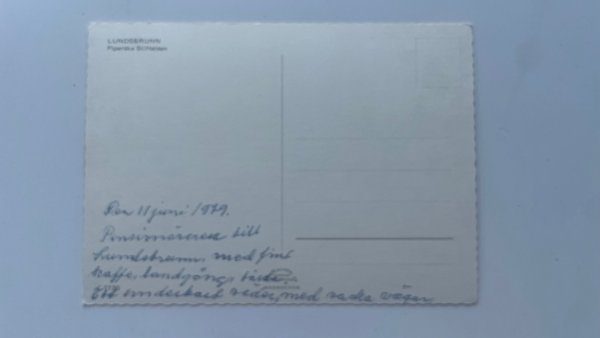 LUNDSBRUNN
Piperska Stiftelsen
Den 11 juni 1979.
Pensionärsresa till
Lundsbrunn, med fint
kaffe, landgång, tårta,
Ett underbart väder, med vackra vägar